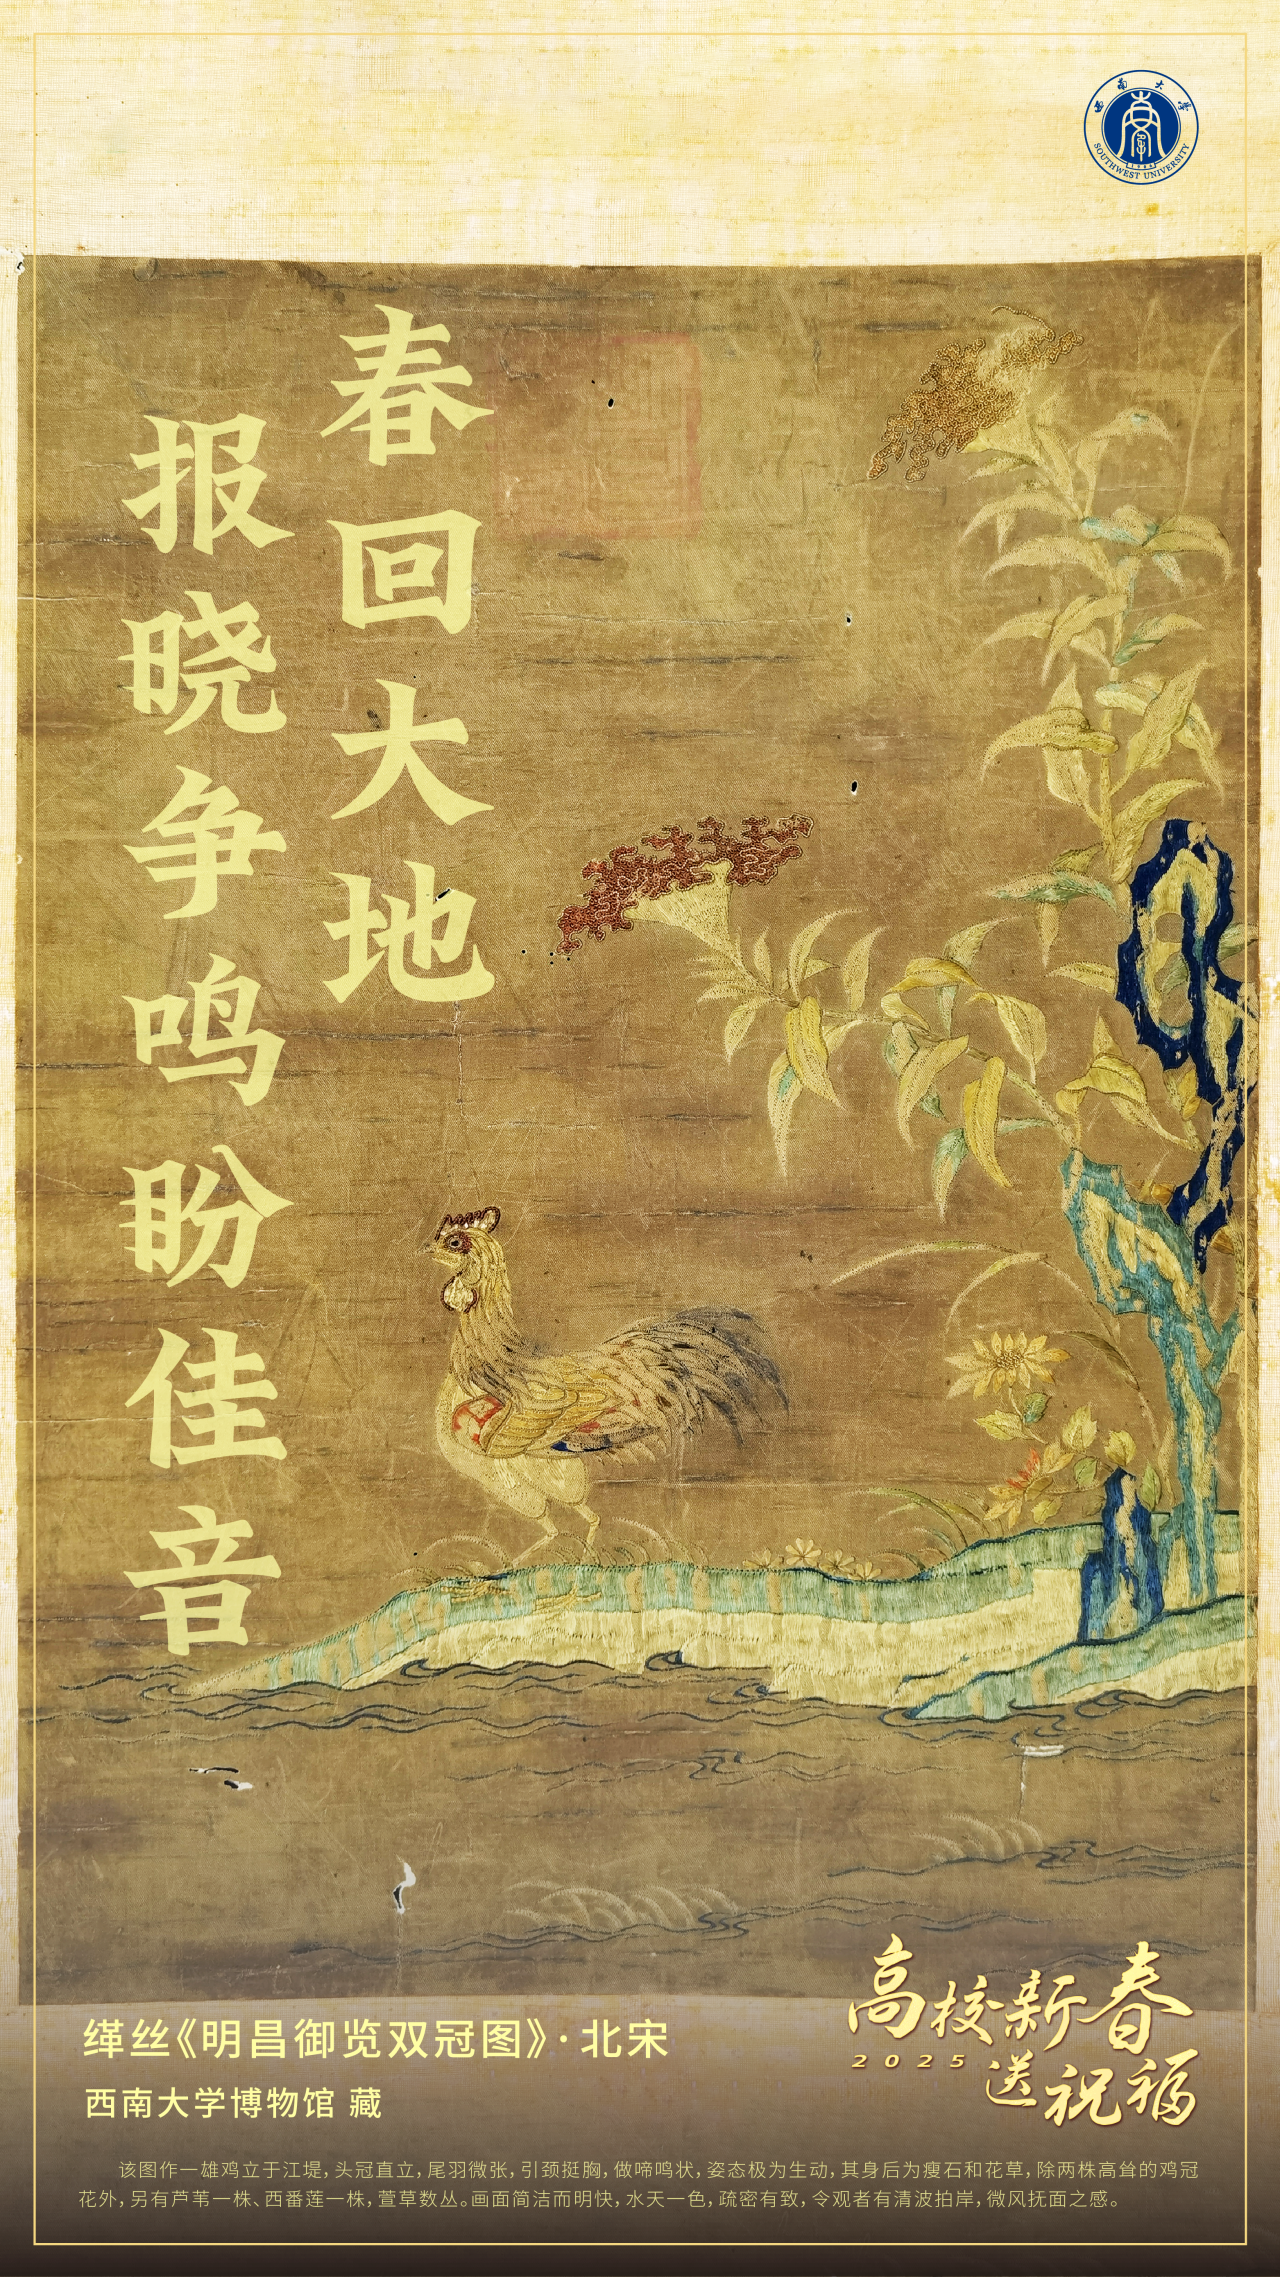 西南大学
SOUTHWEST UNIVERSITY
春回大地
报晓争鸣盼佳音
高校新春
2025 送祝福
缂丝《明昌御览双冠图》·北宋
西南大学博物馆 藏
该图作一雄鸡立于江堤，头冠直立，尾羽微张，引颈挺胸，做啼鸣状，姿态极为生动，其身后为瘦石和花草，除两株高耸的鸡冠
花外，另有芦苇一株、西番莲一株，萱草数丛。画面简洁而明快，水天一色，疏密有致，令观者有清波拍岸，微风抚面之感。